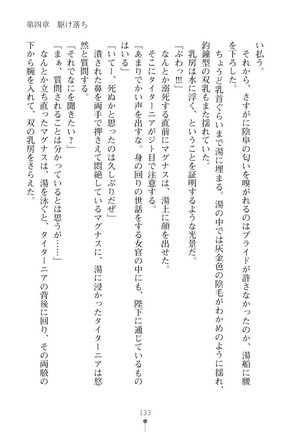 第四章　駆け落ち
い払う。
それから、さすがに陰阜の匂いを嗅がれるのはプライドが許さなかったのか、湯船に腰
を下ろした。
ちょうど乳首ぐらいまで湯に埋まる。湯の中では灰金色の陰毛がわかめのように揺れ、
釣鐘型の双乳もまた揺れていた。
乳房は水に浮く、ということを証明するような光景だ。
「ぷわっ!!!」
なんとか溺死する直前にマグナスは、湯上に顔を出せた。
そこにタイターニアがジト目で注意する。
「あまりでかい声を出すな、身の回りの世話をする女官の中にも、陛下に通じているもの
はいる」
「いてー、死ぬかと思ったのは久しぶりだぜ」
潰された鼻を両手で押さえて悶絶しているマグナスに、湯に浸かったタイターニアは悠
然と質問する。
「それでなにを聞きたい？」
「まぁ、質問されることは分かっているとは思うが……」
なんとか立ち直ったマグナスは、湯を泳ぐと、タイターニアの背後に回り、その両腋の
下から腕を入れて、双の乳房をすくった。
133